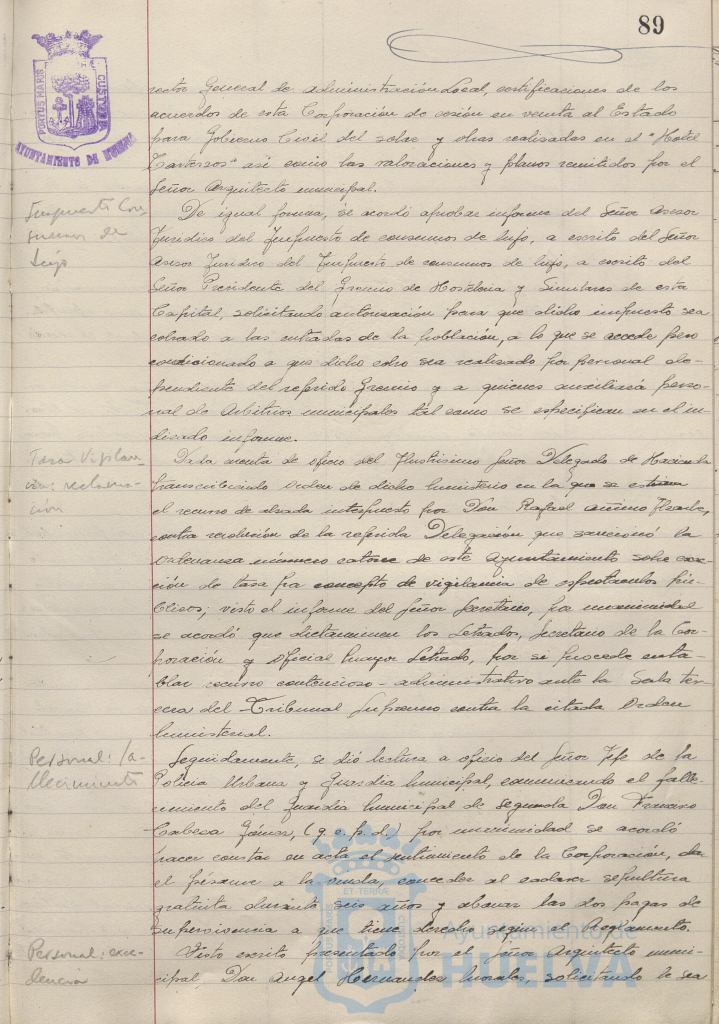 89
PORTUS MARIS
CUSTODIA
AYUNTAMIENTO DE HUELVA
rector General de Administración Local, certificaciones de los
acuerdos de esta Corporación de cesión en venta al Estado
para Gobierno Civil del solar y obras realizadas en el "Hotel
Tartessos" así como las valoraciones y planos remitidos por el
Señor Arquitecto municipal.
Impuesto Con-
sumos de
lujo
De igual forma, se acordó aprobar informe del Señor Asesor
Jurídico del Impuesto de consumos de lujo, a escrito del Señor
Asesor Jurídico del Impuesto de consumos de lujo, a escrito del
Señor Presidente del Gremio de Hostelería y Similares de esta
Capital, solicitando autorización para que dicho impuesto sea
cobrado a las entradas de la población, a lo que se accede pero
condicionado a que dicho cobro sea realizado por personal de-
pendiente del referido Gremio y a quienes auxiliará perso-
nal de Arbitrios municipales tal como se especifican en el in-
dicado informe.
Tasa Vigilan-
cia: reclama-
ción
Dada cuenta de oficio del Ilustrísimo Señor Delegado de Hacienda
transcribiendo Orden de dicho ministerio en la que se estima
el recurso de alzada interpuesto por Don Rafael
contra resolución de la referida Delegación, que sancionó la
Ordenanza número catorce de este Ayuntamiento sobre exac-
ción de tasa por concepto de vigilancia de espectáculos pú-
blicos; visto el informe del Señor Secretario, por unanimidad
se acordó que dictaminen los Letrados, Secretario de la Cor-
poración y Oficial Mayor Letrado, por si procede enta-
blar recurso contencioso-administrativo ante la Sala ter-
cera del Tribunal Supremo contra la citada Orden
ministerial.
Personal: fa-
llecimiento
Seguidamente, se dió lectura a oficio del Señor Jefe de la
Policía Urbana y Guardia municipal, comunicando el falle-
cimiento del Guardia municipal de segunda Don Francisco
Cabeza Gómez, (q.e.p.d.) por unanimidad se acordó
hacer constar en acta el sentimiento de la Corporación, dar
el pésame a la viuda, conceder al cadáver sepultura
gratuita durante seis años y abonar las dos pagas de
supervivencia a que tiene derecho según el Reglamento.
Personal: exce-
dencia
Visto escrito presentado por el Señor Arquitecto muni-
cipal, Don Angel Hernández Morales, solicitando le sea
Ayuntamiento de
HUELVA